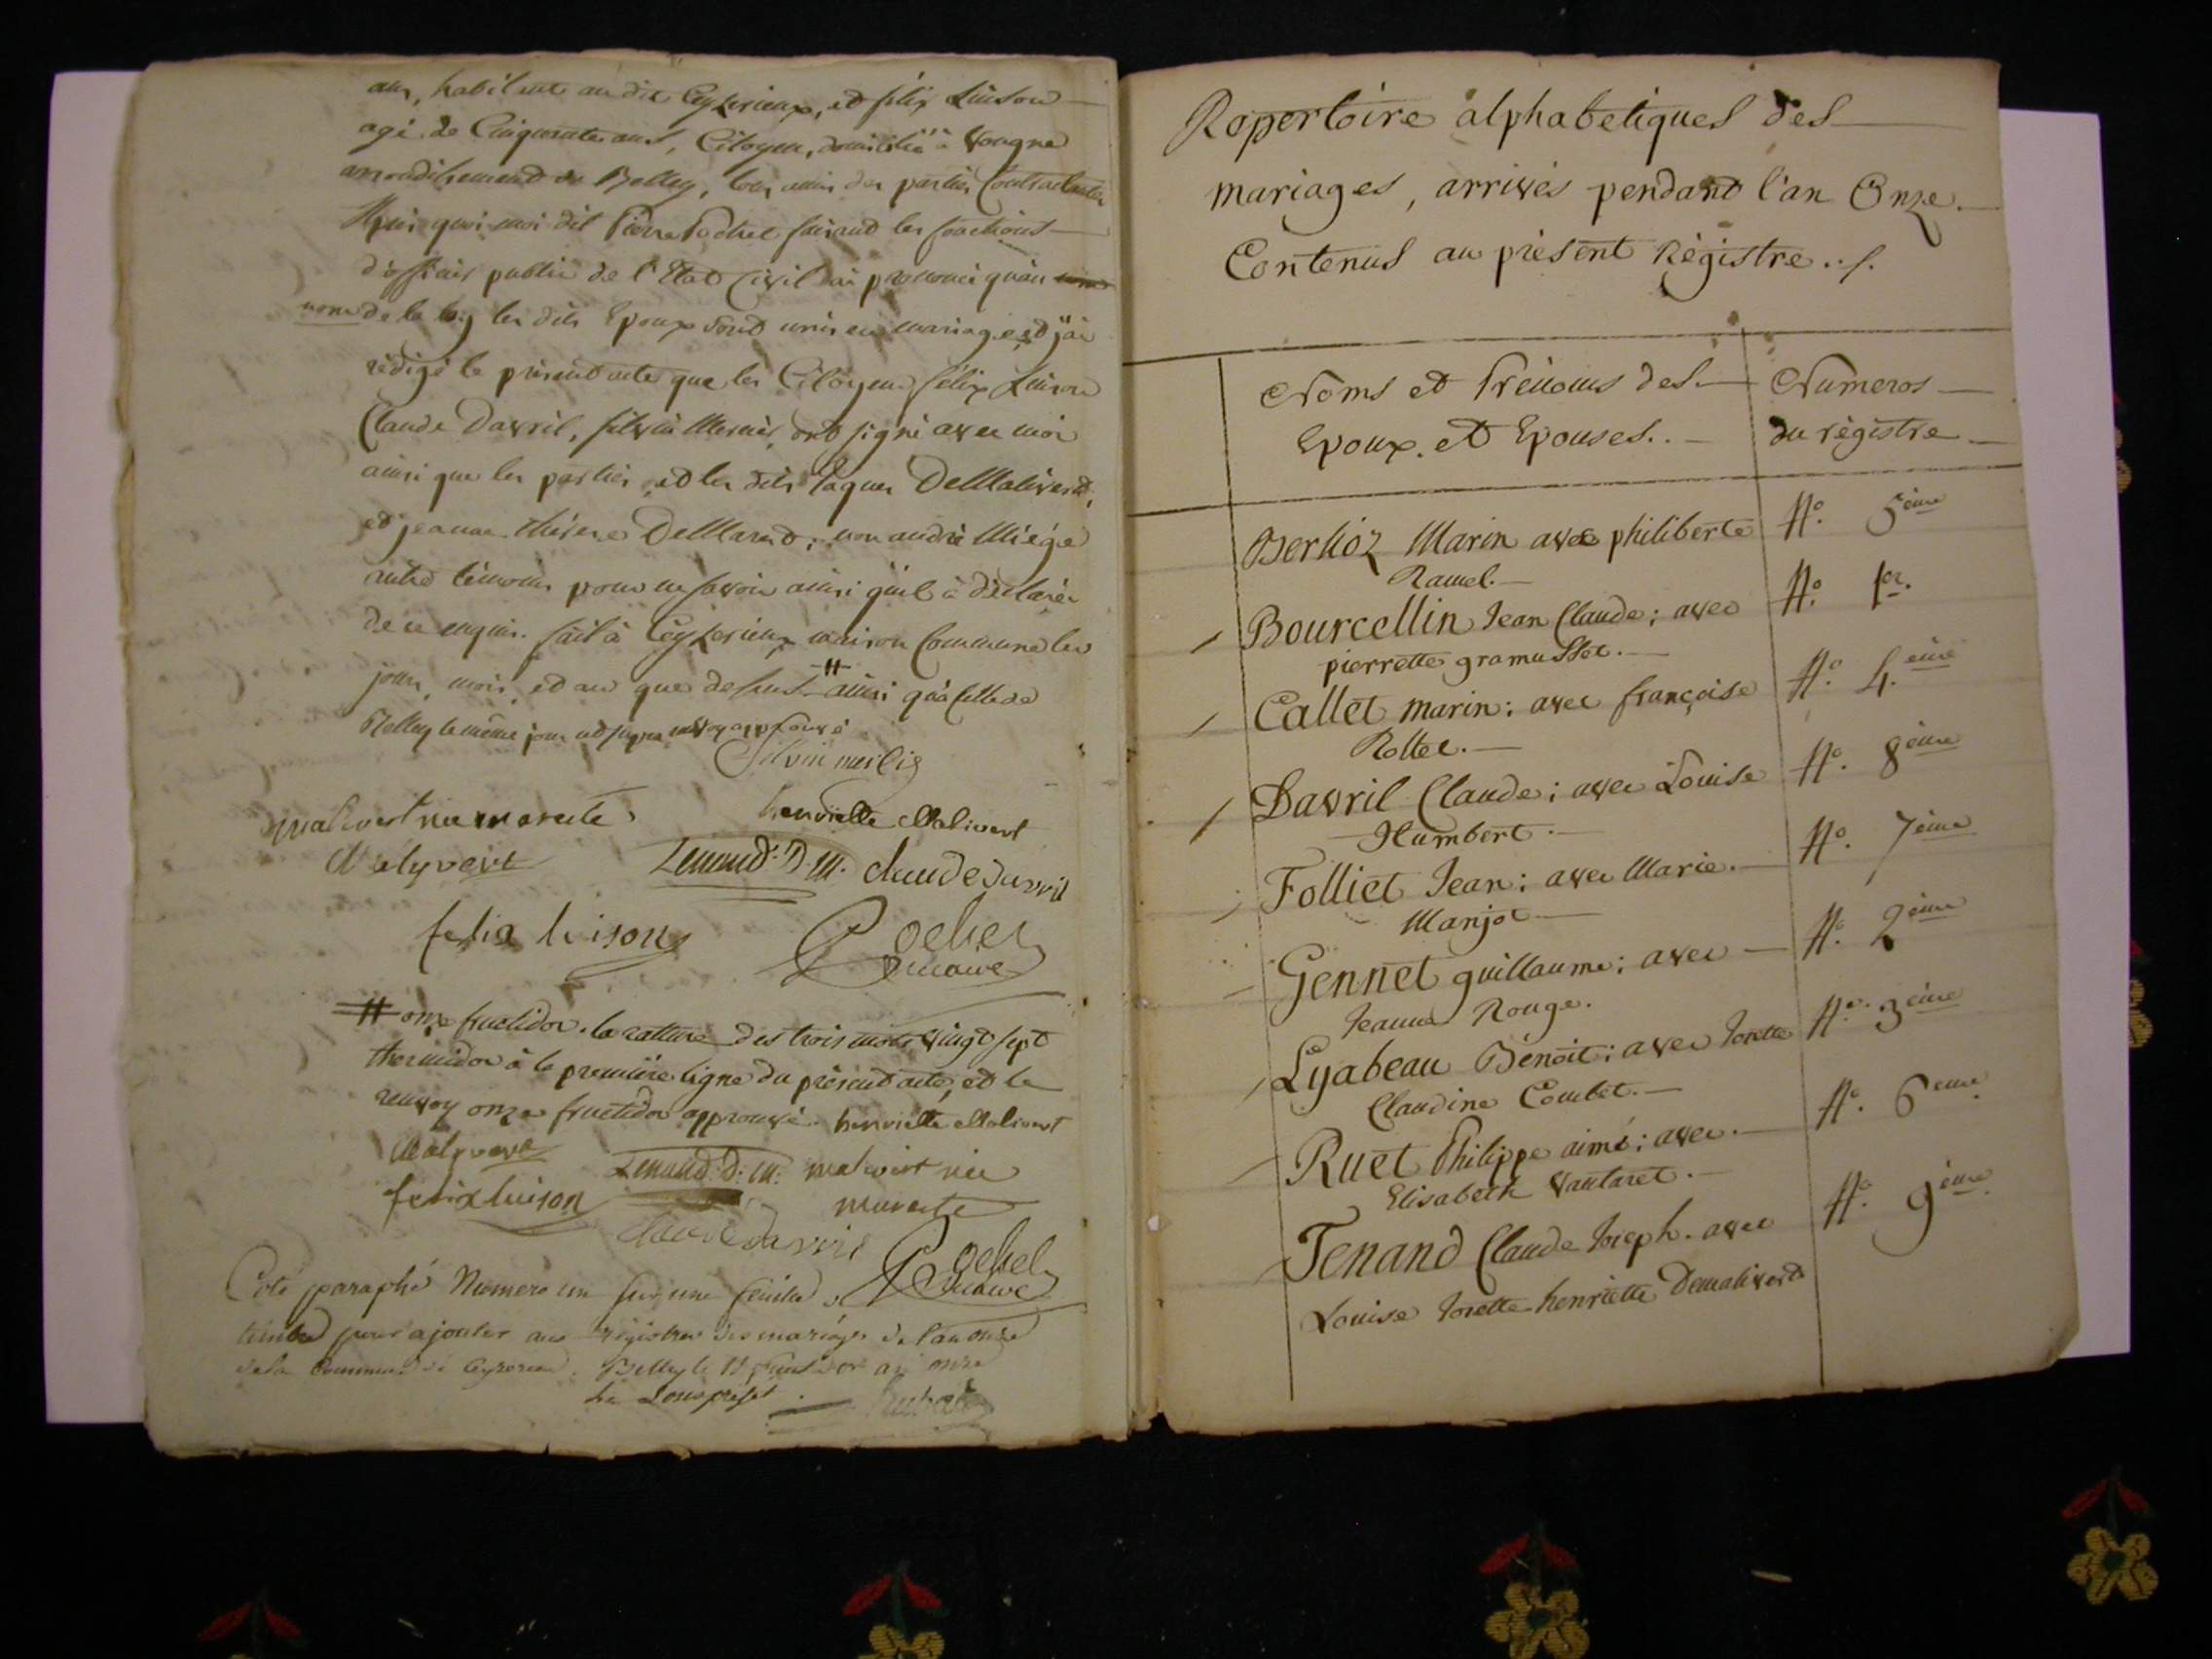 ans, habitant au dit Ceyzerieux, et félix Luison
agé de Cinquante ans, Citoyen, domicilié à Vongne
arrondissement de Belley, tous amis des parties Contractantes
Apres quoi moi dit Pierre Pochet faisant les fonctions
d'officier public de l'Etat Civil ai prononcé qu'au
nom de la loy les dits Epoux sont unis en mariage et j'ai
rédigé le présent acte que les Citoyens félix Luison
Claude Davril, silvin Merlin, ont signé avec moi
ainsi que les parties, et les dits Jaques DeMalivert,
et jeanne thérese DeMarest, non andré Miège
autre témoin pour ne savoir ainsi qu'il à déclaré
de ce enquis. fait à Ceyzerieux maison Commune les
jour, mois, et an que dessus # ainsi qu'à celle de
Belley le même jour
Silvin merlin
malivert née mareste henriette Malivert
Malyvert Tenand D. M. claude davril
felix luison Pochet
maire
# onze fructidor. la rature des trois mots vingt sept
thermidor à la première ligne du présent acte, et le
renvoy onze fructidor approuvé. henriette Malivert
Malyvert Tenand: D: M: malivert née
felix luison mareste
claude davril Pochet
maire
Coté paraphé Numero un sur une feuille
timbré pour ajouter aux régistres des mariages de l'an onze
de la Commune de Ceyzerieu. Belley le 11 fructidor an onze
Le Sousprefet.
Repertoire alphabetiques des
mariages, arrivés pendant l'an Onze.
Contenus au présent Régistre ./.
Noms et Prénoms des Numeros
Epoux et Epouses. du régistre
Berlioz Marin avec philiberte N.º 5ème
Ramel.
Bourcellin Jean Claude; avec N.º 1er.
pierrette gramusset.
Callet marin; avec françoise N.º 4.ème
Rollet.
Davril Claude; avec Louise N.º 8ème
Humbert.
Folliet Jean; avec Marie. N.º 7ème
Manjot
Gennet guillaume; avec N.º 2ème
Jeanne Rouge.
Lyabeau Benoit; avec Josette N.º 3ème
Claudine Combet.
Ruet Philippe aimé; avec. N.º 6ème
Elisabeth Vantaret.
Tenand Claude Joseph. avec N.º 9ème
Louise Josette henriette Demalivert